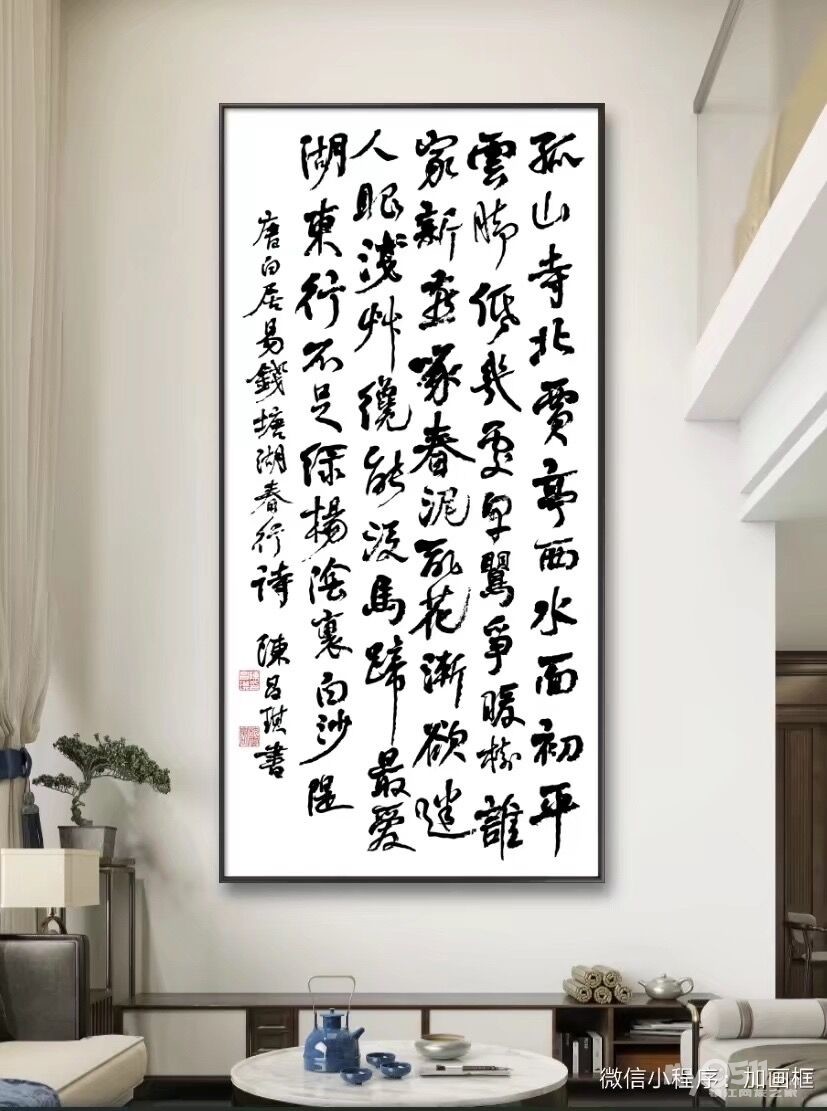 孤山寺北賈亭西水面初平
雲脚低幾處早鶯爭暖樹誰
家新燕啄春泥亂花漸欲迷
人眼淺艸纔能没馬蹄最愛
湖東行不足綠楊陰裏白沙隄
唐白居易錢塘湖春行詩 陳昌琪書
微信小程序：加画框
0511